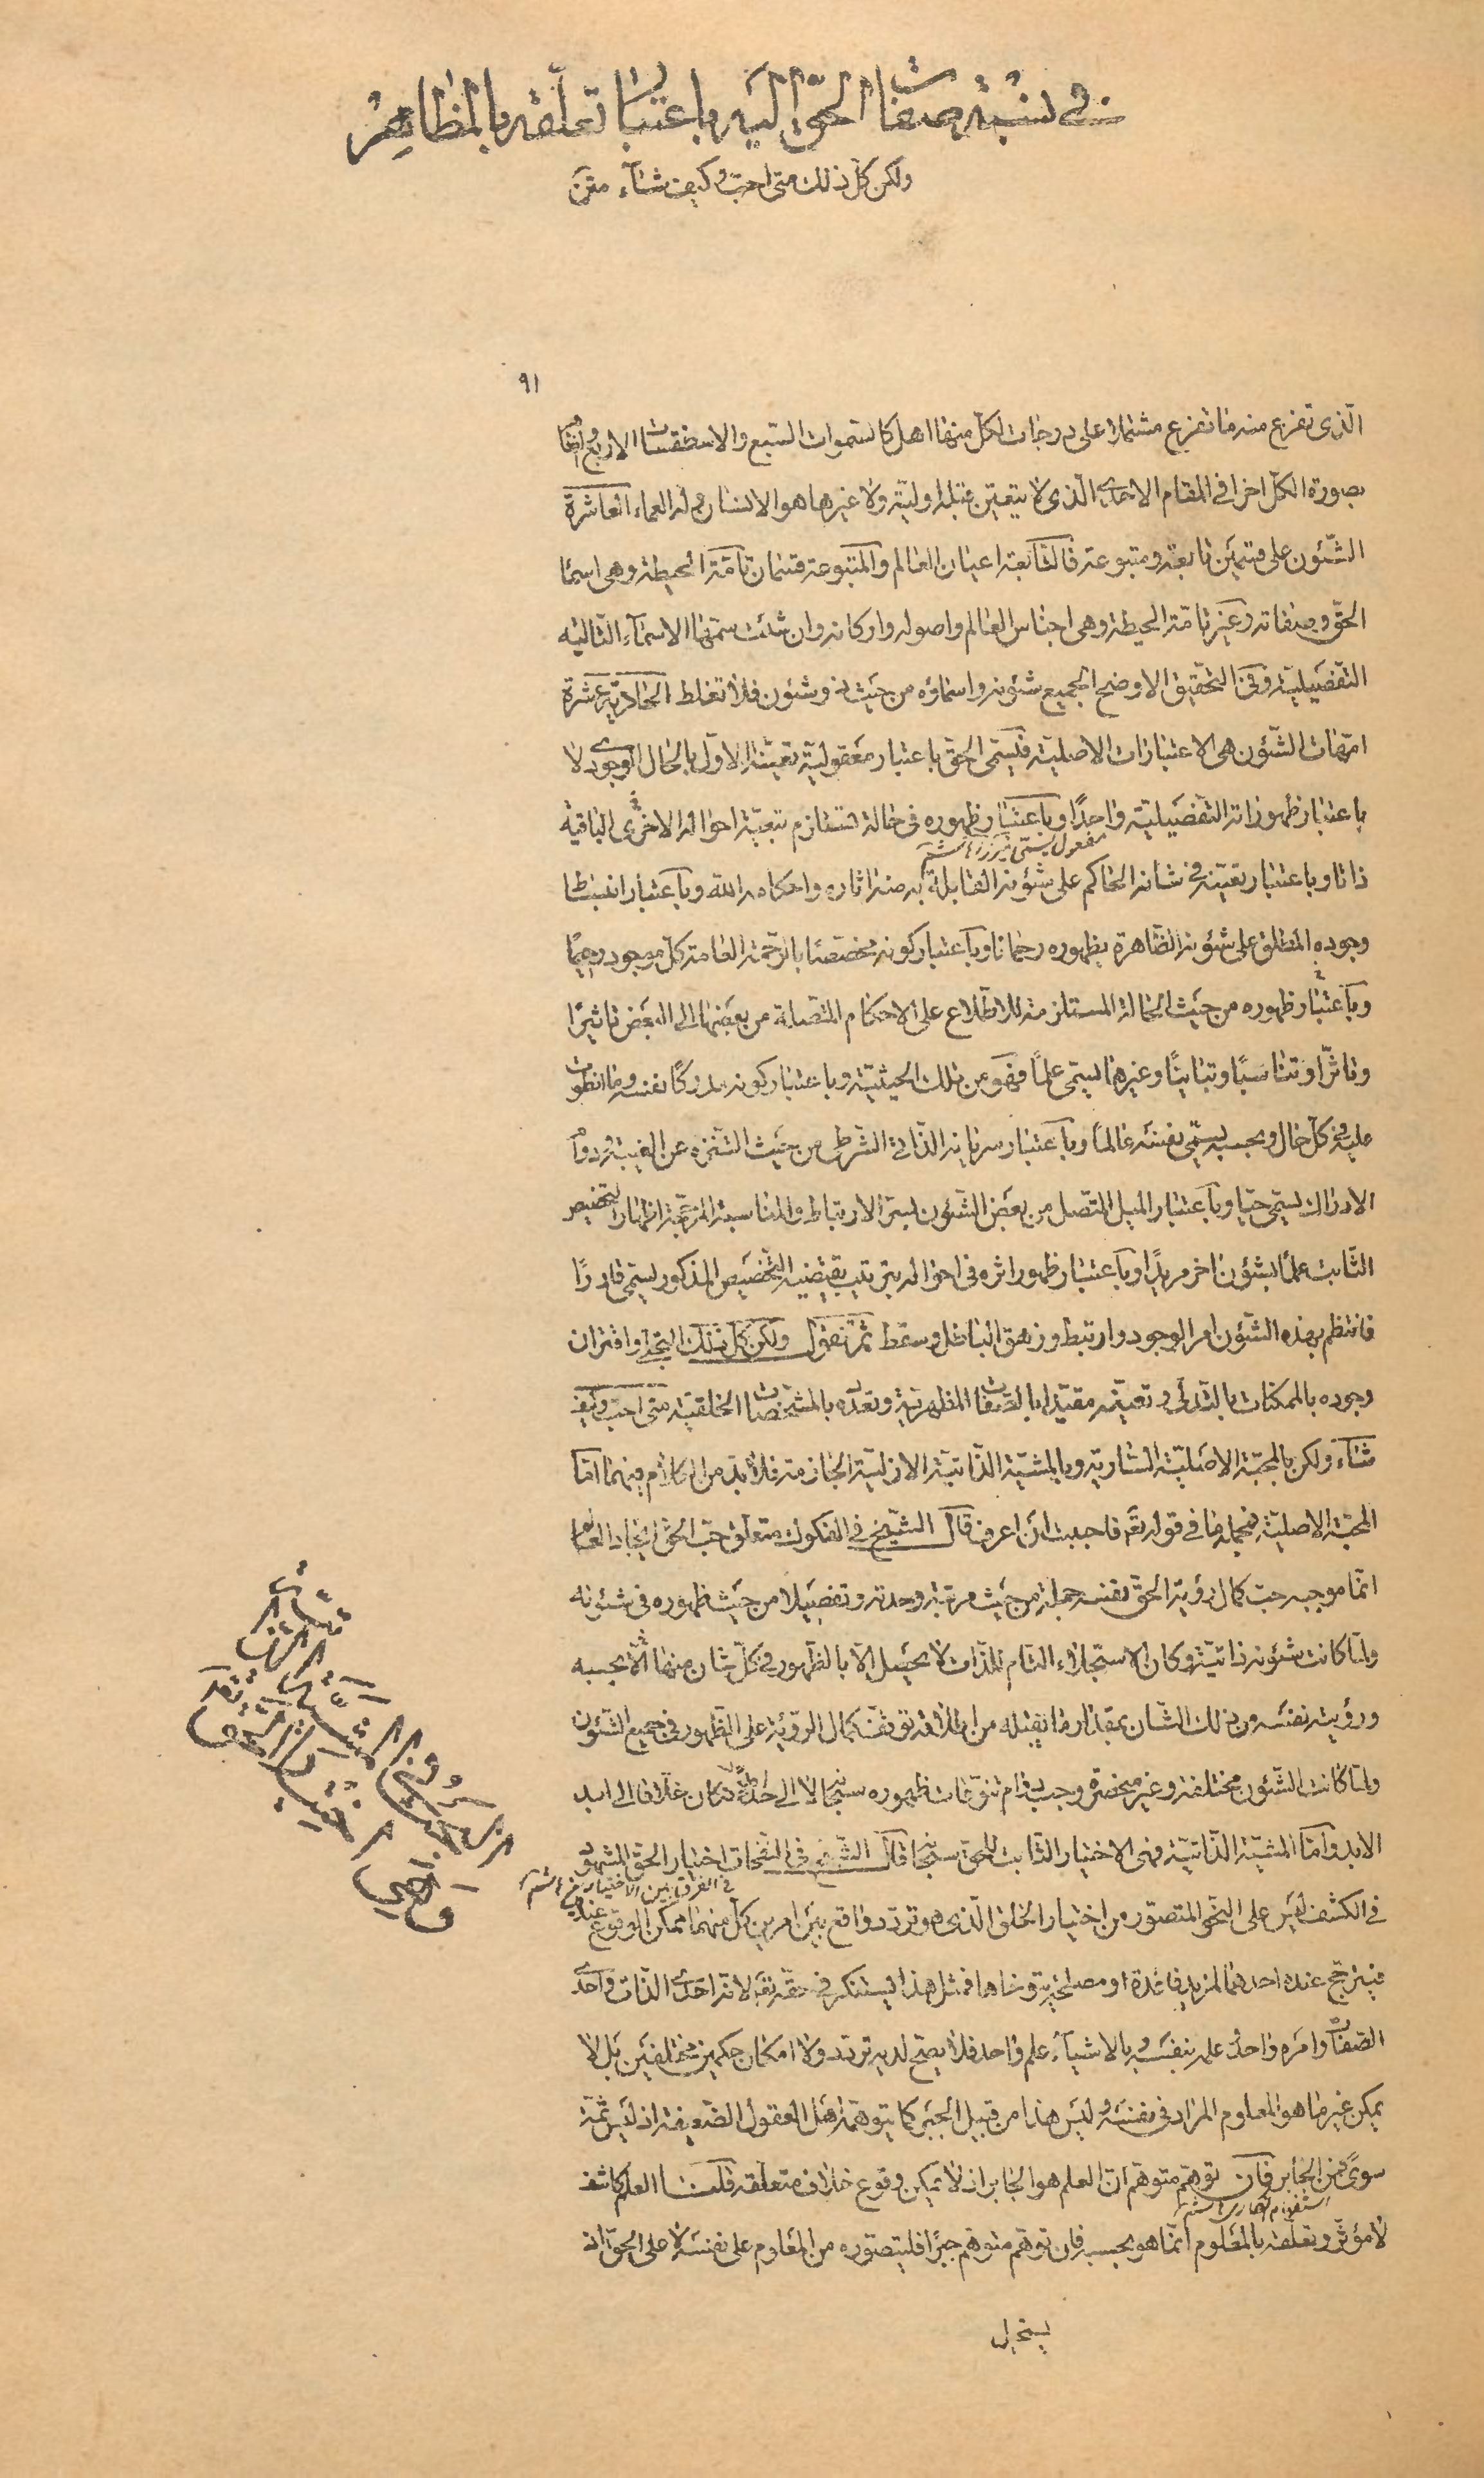 في نسبة صفات الحق اليه باعتبار تعلقه بالمظاهر
ولكن كل ذلك متى احب وكيف شاء متن
٩١
الذى تفرع منه ما تفرع مشتملا على درجات لكل منها اهل كالسموات السبع والاسطقسات الاربع واما
بصورة الكل اخرا في المقام الاحدى الذى لا يتعين قبله اولية ولا غيرها هو الانسان وله العماء العاشرة
الشئون على قسمين تابعة ومتبوعة فالتابعة اعيان العالم والمتبوعة قسمان تامة الحيطة وهى اسماء
الحق وصفاته وغير تامة الحيطة وهى اجناس العالم واصوله واركانه وان شئت سمها الاسماء التالية
التفصيلية وفى التحقيق الاوضح الجميع شئونه واسماؤه من حيث هو ذو شئون فلا تغلط الحادية عشرة
امهات الشئون هى الاعتبارات الاصلية فيسمى الحق باعتبار معقولية تعينه الاول بالحال الوجودى لا
باعتبار ظهوراته التفصيلية واحدًا وباعتبار ظهوره فى حالة تستلزم تبعية احواله الاخرى الباقية
ذاتا وباعتبار تعينه في شانه الحاكم على شؤنه القابلة به منه اثاره واحكامه الله وباعتبار انبساط
مفعول يسمى
وجوده المطلق على شئونه الظاهرة بظهوره رحمانا وباعتبار كونه مخصصا بالرحمة العامة كل موجود رحيمًا
وباعتبار ظهوره من حيث الحالة المستلزمة للاطلاع على الاحكام المتصلة من بعضها الى البعض تاثيرًا
وتاثرًا وتناسبًا وتباينًا وغيرها يسمى علمًا فهو من تلك الحيثية وباعتبار كونه مدركا نفسه وما انطوت
عليه في كل حال وبحسبه يسمى نفسه عالمًا وباعتبار سريانه الذاتى الشرطى من حيث التنزه عن الغيبة ودوام
الادراك يسمى حيًا وباعتبار الميل المتصل من بعض الشئون بسر الارتباط والمناسبة المرجحة اظهار التخصيص
الثابت علمًا بشئون اخر مريدًا وباعتبار ظهور اثره فى احواله بترتيب يقتضيه التخصيص المذكور يسمى قادرًا
فانتظم بهذه الشئون امر الوجود وارتبط وزهق الباطل وسقط ثم نقول ولكن كل ذلك التجلى واقتران
وجوده بالممكنات بالتدلى وتعينه مقيدا بالصفات المظهرية وتعدده بالمشخصات الخلقية متى احب وكيف
شاء ولكن بالمحبة الاصلية السارية وبالمشية الذاتية الازلية الجازمة فلا بد من الكلام فيهما اما
المحبة الاصلية فجملة ما في قوله تعالى فاحببت ان اعرف قال الشيخ في الفكوك متعلق حب الحق ايجاد العالم
انما موجبه حب كمال رؤية الحق نفسه جملة من حيث مرتبة وحدته وتفصيلا من حيث ظهوره فى شئونه
ولما كانت شئونه ذاتية وكان الاستجلاء التام للذات لا يحصل الا بالظهور في كل شان منها بحسبه
ورؤيته نفسه من ذلك الشان بمقدار ما يقبله من اطلاقه توقف كمال الرؤية على الظهور في جميع الشئون
ولما كانت الشئون مختلفة وغير منحصرة وجب دوام تنوعات ظهوره سبحانه الى
الابد واما المشية الذاتية فهى الاختيار الثابت للحق سبحانه قال الشيخ فى النفحات اختيار الحق المشهود
في الفرق بين الاختيارين
في الكشف ليس على النحو المتصور من اختيار الخلق الذى هو تردد واقع بين امرين كل منهما ممكن الوقوع عنده
فيترجح عنده احدهما لمزيد فائدة او مصلحة يتوخاها فمثل هذا يستنكر في حقه تعالى لانه احدى الذات واحدى
الصفات وامره واحد وعلمه بنفسه وبالاشياء علم واحد فلا يصح لديه تردد ولا امكان حكمين مختلفين بل لا
يمكن غير ما هو المعلوم المراد فى نفسه وليس هذا من قبيل الجبر كما يتوهمه اهل العقول الضعيفة اذ ليس ثمة
سوى فمن الجابر فان توهم متوهم ان العلم هو الجابر اذ لا يمكن وقوع خلاف متعلقه قلنا العلم كاشف
استفهام انكارى
لا مؤثر وتعلقه بالمعلوم انما هو بحسبه فان توهم متوهم جبرًا فليتصوره من المعلوم على نفسه لا على الحق اذ
يستحيل